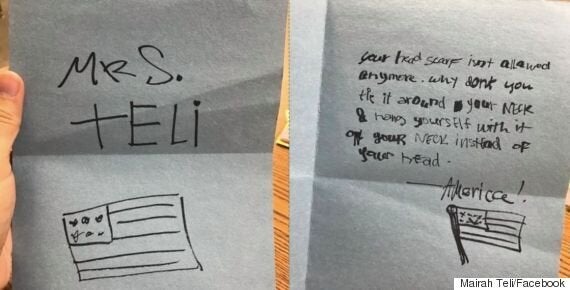 MRS.
TELi
your head scarf isnt allowed
anymore. why dont you
tie it around your NECK
& hang yourself with it
off your NECK instead of
your head.
—America!
Mairah Teli/Facebook